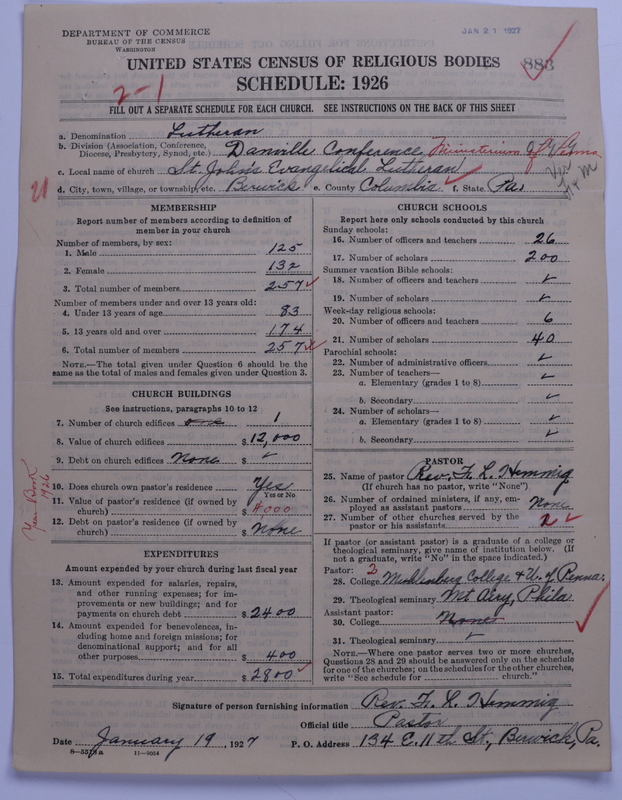 DEPARTMENT OF COMMERCE
BUREAU OF THE CENSUS
WASHINGTON
JAN 21 1927
UNITED STATES CENSUS OF RELIGIOUS BODIES
883
SCHEDULE: 1926
2-1
FILL OUT A SEPARATE SCHEDULE FOR EACH CHURCH. SEE INSTRUCTIONS ON THE BACK OF THIS SHEET
a. Denomination Lutheran
b. Division (Association, Conference, Diocese, Presbytery, Synod, etc.) Danville Conference Ministerium of
c. Local name of church St. John's Evangelical Lutheran
d. City, town, village, or township, etc. Berwick e. County Columbia f. State Pa.
21
MEMBERSHIP
Report number of members according to definition of member in your church
Number of members, by sex:
1. Male 125
2. Female 132
3. Total number of members 257
Number of members under and over 13 years old:
4. Under 13 years of age 83
5. 13 years old and over 174
6. Total number of members 257
NOTE.—The total given under Question 6 should be the
same as the total of males and females given under Question 3.
CHURCH BUILDINGS
See instructions, paragraphs 10 to 12
7. Number of church edifices one 1
8. Value of church edifices $ 12,000
9. Debt on church edifices None $
10. Does church own pastor's residence Yes
Yes or No
11. Value of pastor's residence (if owned by
church) $ 4,000
12. Debt on pastor's residence (if owned by
church) $ None
Year Book
1926
EXPENDITURES
Amount expended by your church during last fiscal year
13. Amount expended for salaries, repairs,
and other running expenses; for im-
provements or new buildings; and for
payments on church debt $ 2400
14. Amount expended for benevolences, in-
cluding home and foreign missions; for
denominational support; and for all
other purposes $ 400
15. Total expenditures during year $ 2800
CHURCH SCHOOLS
Report here only schools conducted by this church
Sunday schools:
16. Number of officers and teachers 26
17. Number of scholars 200
Summer vacation Bible schools:
18. Number of officers and teachers
19. Number of scholars
Week-day religious schools:
20. Number of officers and teachers 6
21. Number of scholars 40
Parochial schools:
22. Number of administrative officers
23. Number of teachers—
a. Elementary (grades 1 to 8)
b. Secondary
24. Number of scholars—
a. Elementary (grades 1 to 8)
b. Secondary
PASTOR
25. Name of pastor Rev. F. L. Hemmig
(If church has no pastor, write "None")
26. Number of ordained ministers, if any, em-
ployed as assistant pastors None
27. Number of other churches served by the
pastor or his assistants 2
If pastor (or assistant pastor) is a graduate of a college or
theological seminary, give name of institution below. (If
not a graduate, write "No" in the space indicated.)
Pastor: 2
28. College Mecklenburg College & U. of Penna.
29. Theological seminary Mt Airy, Phila
Assistant pastor:
30. College None
31. Theological seminary
NOTE.—Where one pastor serves two or more churches,
Questions 28 and 29 should be answered only on the schedule
for one of the churches; on the schedules for the other churches,
write "See schedule for church."
Signature of person furnishing information Rev. F. L. Hemmig
Official title Pastor
Date January 19, 1927 P. O. Address 134 E. 11th St., Berwick, Pa.
8-5573a 11-9054